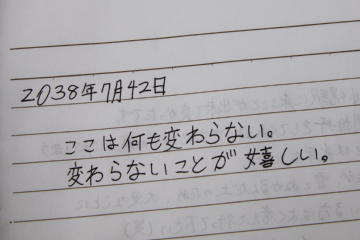 2038年7月42日
ここは何も変わらない。
変わらないことが嬉しい。